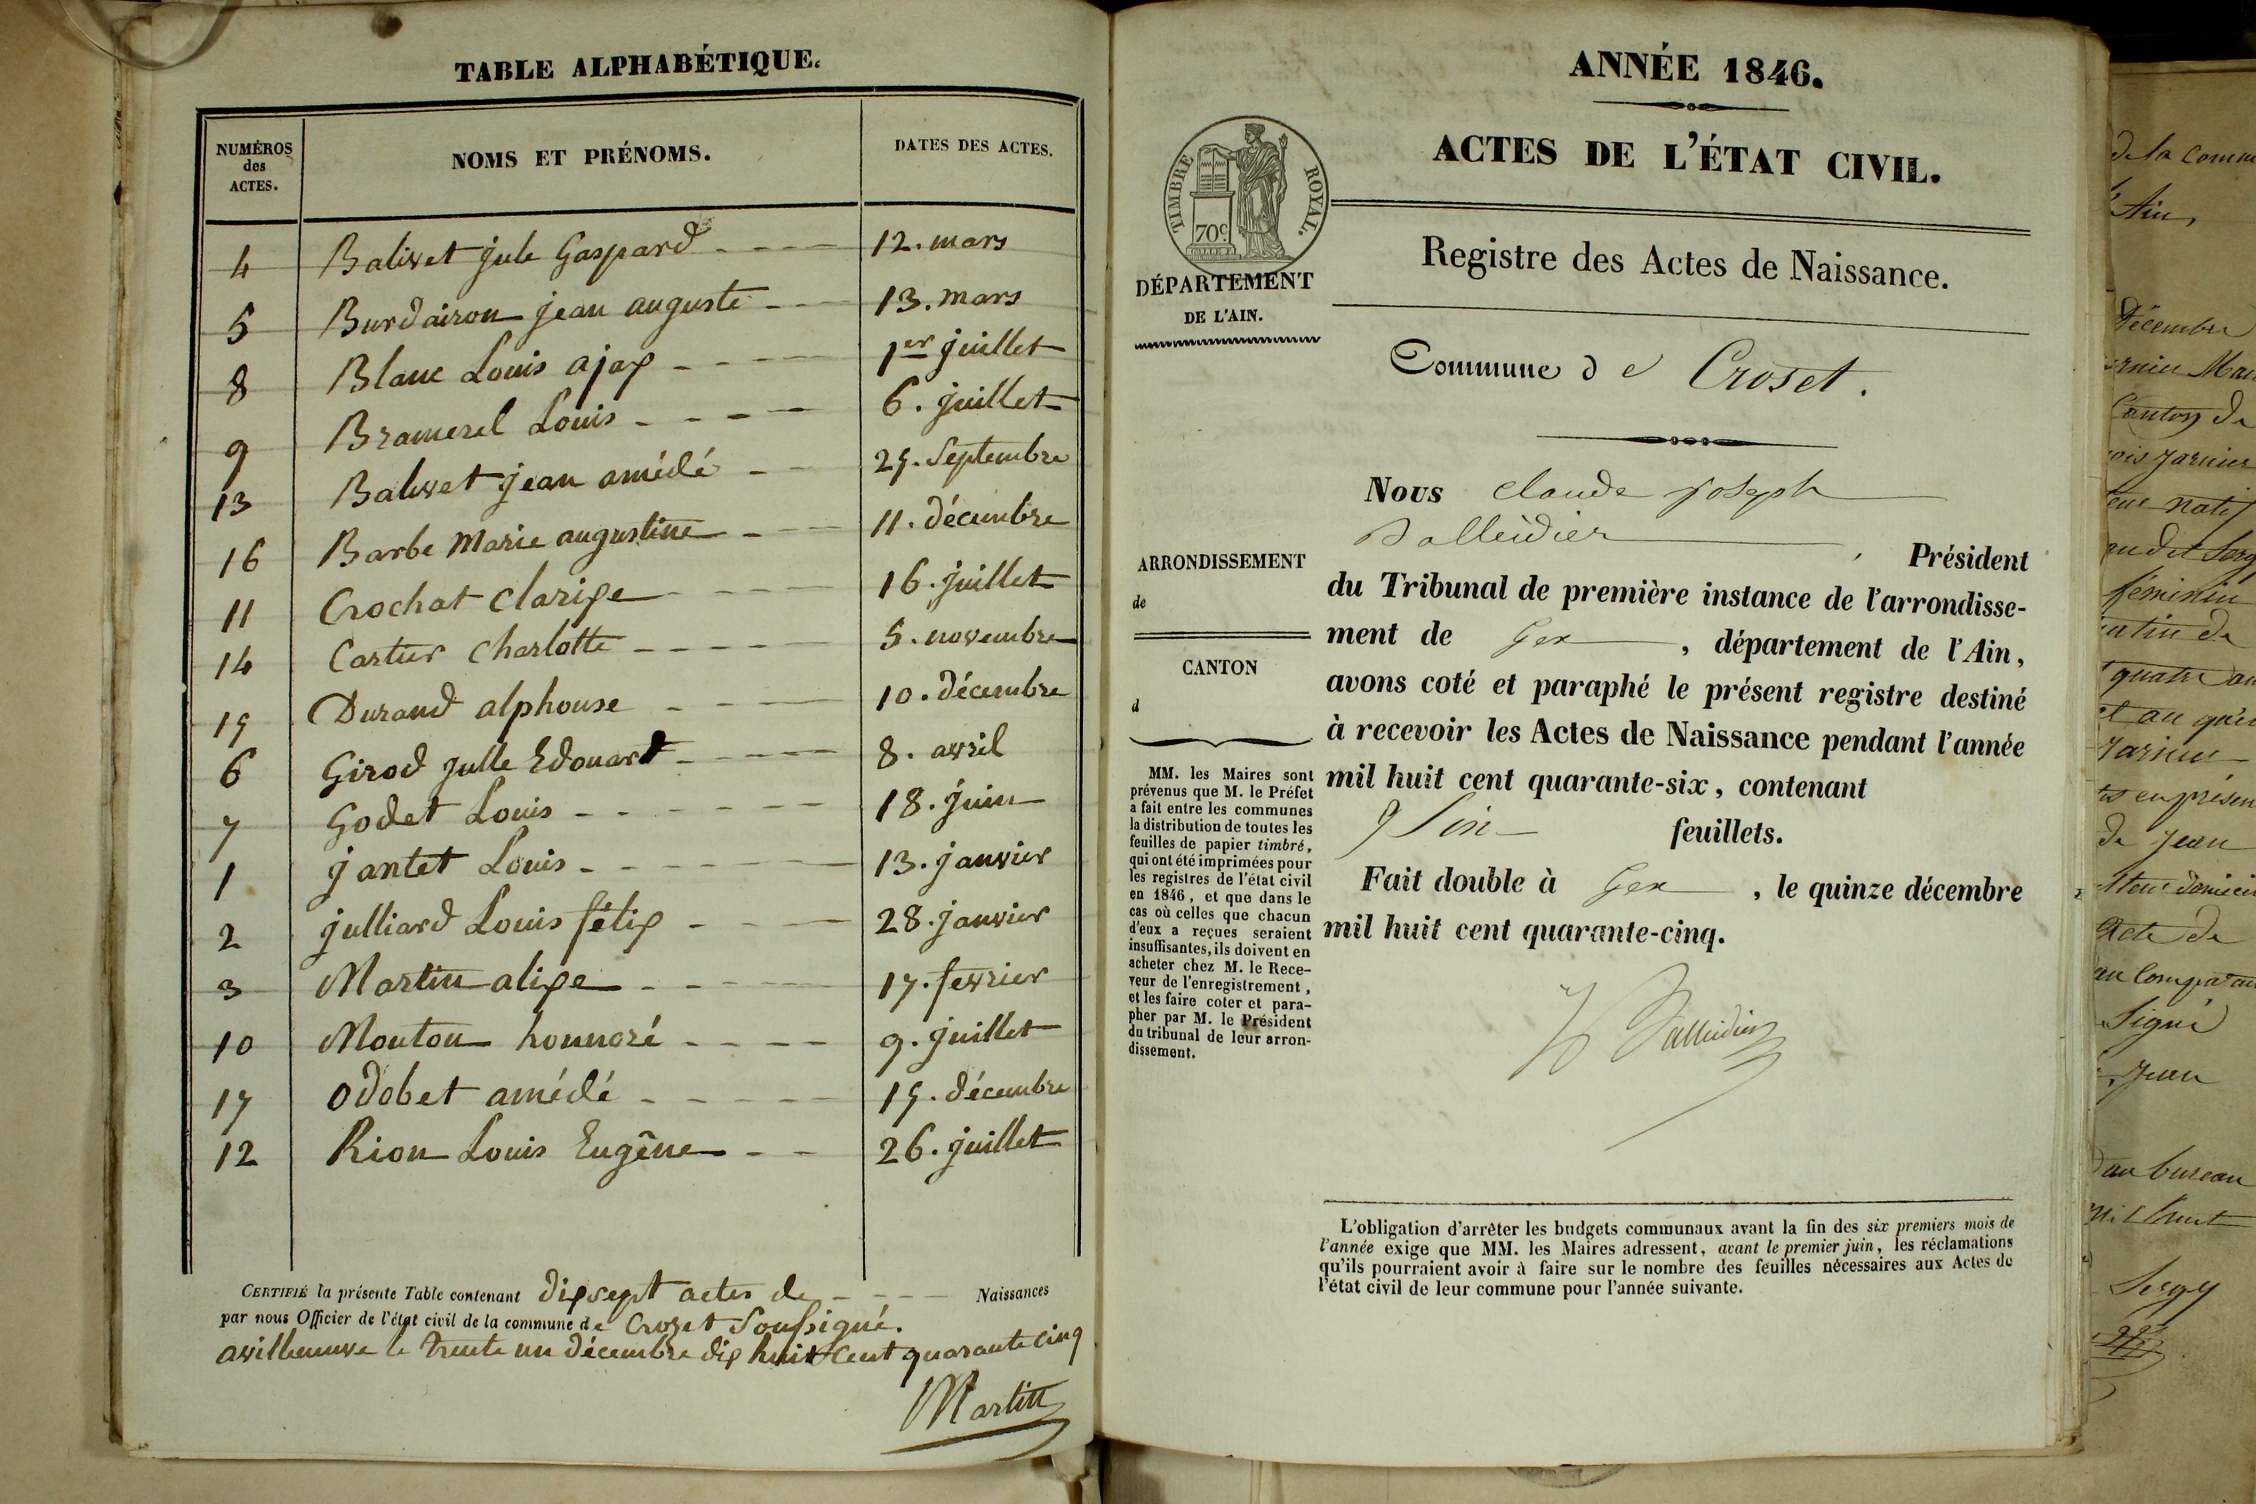 TABLE ALPHABÉTIQUE.
NUMÉROS
des
ACTES.
NOMS ET PRÉNOMS.
DATES DES ACTES.
4 Balivet jule Gaspard 12. mars
5 Burdairon jean auguste 13. mars
8 Blanc Louis ajax 1er juillet
9 Bramerel Louis 6. juillet
13 Balivet jean amédé 25. Septembre
16 Barbe Marie augustine 11. décembre
11 Crochat clarixe 16. juillet
14 Cartier charlotte 5. novembre
15 Durand alphonse 10. décembre
6 Girod julle Edouard 8. avril
7 Godet Louis 18. juin
1 jantet Louis 13. janvier
2 julliard Louis félix 28. janvier
3 Martin alixe 17. fevrier
10 Mouton honnoré 9. juillet
17 odobet amédé 15. décembre
12 Rion Louis Eugêne 26. juillet
CERTIFIÉ la présente Table contenant dixsept actes de Naissances
par nous Officier de l'état civil de la commune de Crozet Soussigné.
avilleneuve le trente un décembre dix huit cent quarante cinq
Martin
ANNÉE 1846.
ACTES DE L'ÉTAT CIVIL.
TIMBRE ROYAL.
70c
DÉPARTEMENT
DE L'AIN.
Registre des Actes de Naissance.
Commune de Croset.
Nous claude joseph
Balleidier, Président
du Tribunal de première instance de l'arrondisse-
ment de Gex, département de l'Ain,
avons coté et paraphé le présent registre destiné
à recevoir les Actes de Naissance pendant l'année
mil huit cent quarante-six, contenant
feuillets.
Fait double à Gex, le quinze décembre
mil huit cent quarante-cinq.
Balleidier
ARRONDISSEMENT
de
CANTON
d
MM. les Maires sont
prévenus que M. le Préfet
a fait entre les communes
la distribution de toutes les
feuilles de papier timbré,
qui ont été imprimées pour
les registres de l'état civil
en 1846, et que dans le
cas où celles que chacun
d'eux a reçues seraient
insuffisantes, ils doivent en
acheter chez M. le Rece-
veur de l'enregistrement,
et les faire coter et para-
pher par M. le Président
du tribunal de leur arron-
dissement.
L'obligation d'arrêter les budgets communaux avant la fin des six premiers mois de
l'année exige que MM. les Maires adressent, avant le premier juin, les réclamations
qu'ils pourraient avoir à faire sur le nombre des feuilles nécessaires aux Actes de
l'état civil de leur commune pour l'année suivante.
de la
Ain,
Décembre
Canton de
féminin
quatre
de jean
acte de
Signé
jean
au bureau
Sergy